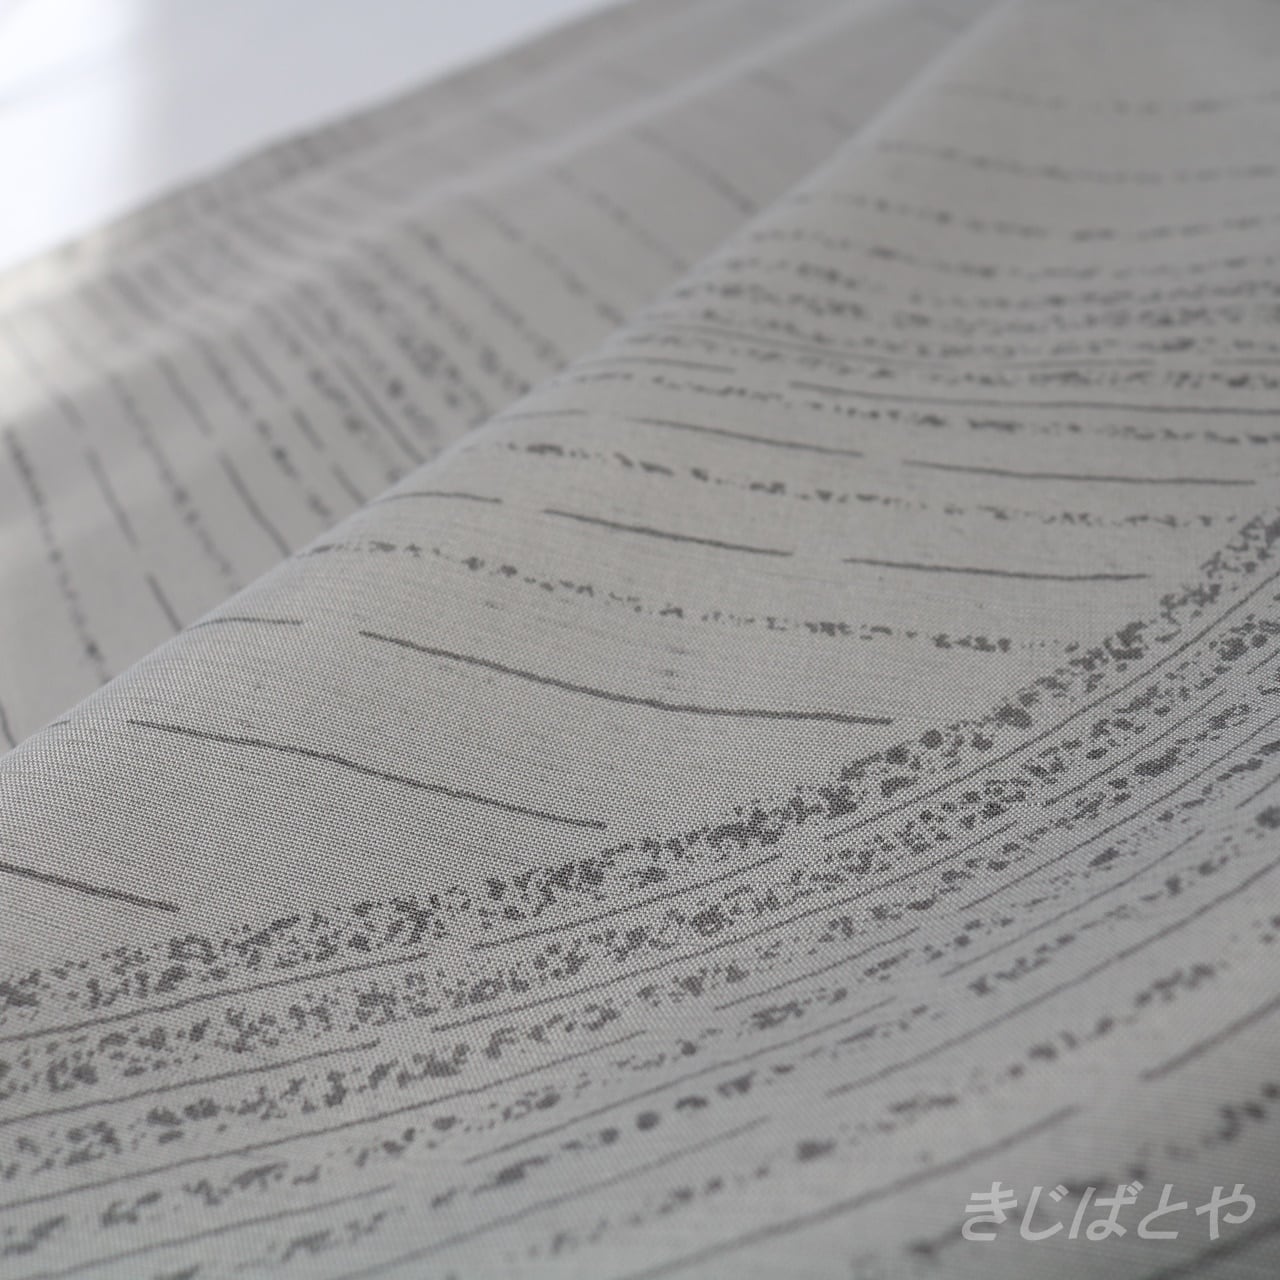 きじばとや